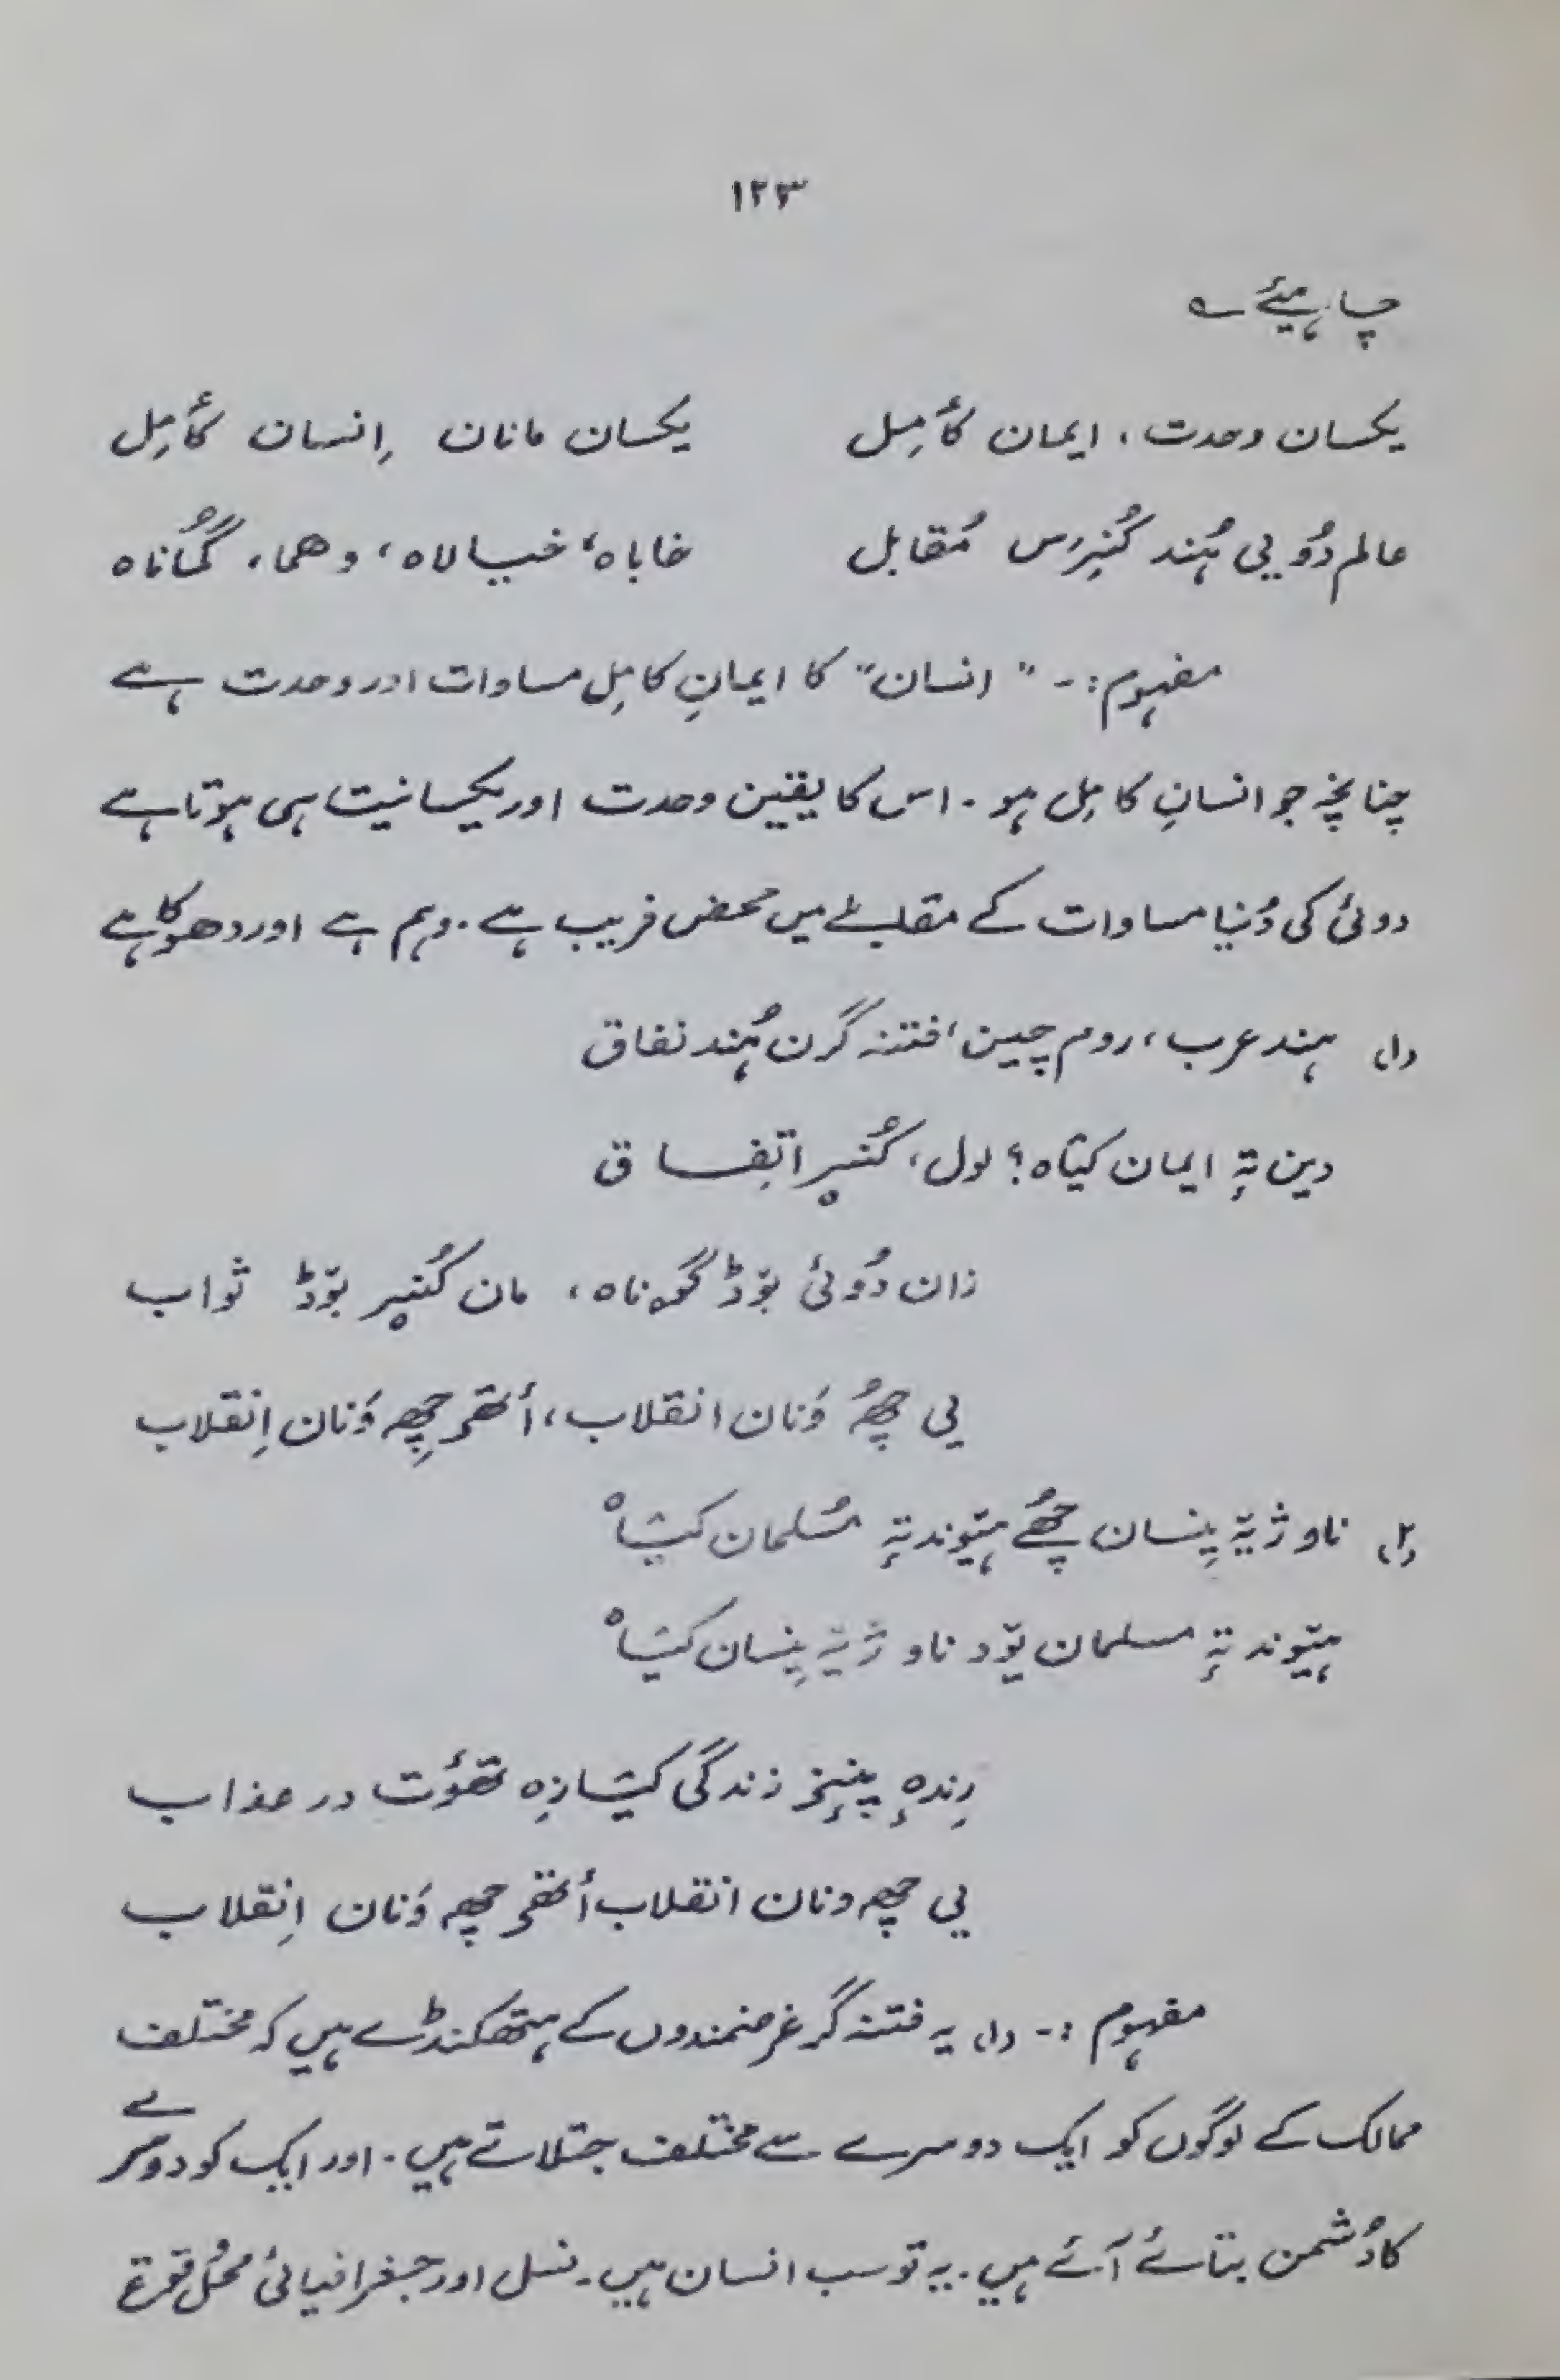 ۱۲۳
چاہیئے ؎
یکسان وحدت، ایمان کأمِل یکسان مانان اِنسان کأمِل
عالم دُویی ہُند کُنِرُس مُقابل خاباہ، خیالاہ، وھما، گُماناہ
مفہوم:- "انسان" کا ایمانِ کامِل مساوات اور وحدت ہے
چنانچہ جو انسانِ کامِل ہو۔ اس کا یقین وحدت اور یکسانیت ہی ہوتا ہے
دوئی کی دُنیا مساوات کے مقابلے میں محض فریب ہے۔ وہم ہے اور دھوکا ہے
(۱) ہند عرب، روم چین، فتنہ گرن ہُند نفاق
دین تہٕ ایمان کیٛاہ؟ لول، کُنیر اتِفاق
زان دُوئی بوٚڈ گوناہ، مان کُنیر بوٚڈ ثواب
یی چھُ وَنان انقلاب، أتھۍ چھِ وَنان اِنقلاب
(۲) ناو ژیٚہ اِنسان چھُے ہیٚوند تہٕ مُسلمان کیٛاہ
ہیٚوند تہٕ مسلمان یوٚد ناو ژیٚہ اِنسان کیٛاہ
رِندہٕ پنٕنۍ زندگی کیٛازِہ تھٔوت در عذاب
یی چھہ ونان انقلاب أتھۍ چھہ وَنان اِنقلاب
مفہوم:- (۱) یہ فتنہ گر غرضمندوں کے ہتھکنڈے ہیں کہ مختلف
ممالک کے لوگوں کو ایک دوسرے سے مختلف جتلاتے ہیں۔ اور ایک کو دوسرے
کا دُشمن بتائے آئے ہیں۔ یہ تو سب انسان ہیں۔ نسل اور جغرافیائی محُل وقوع